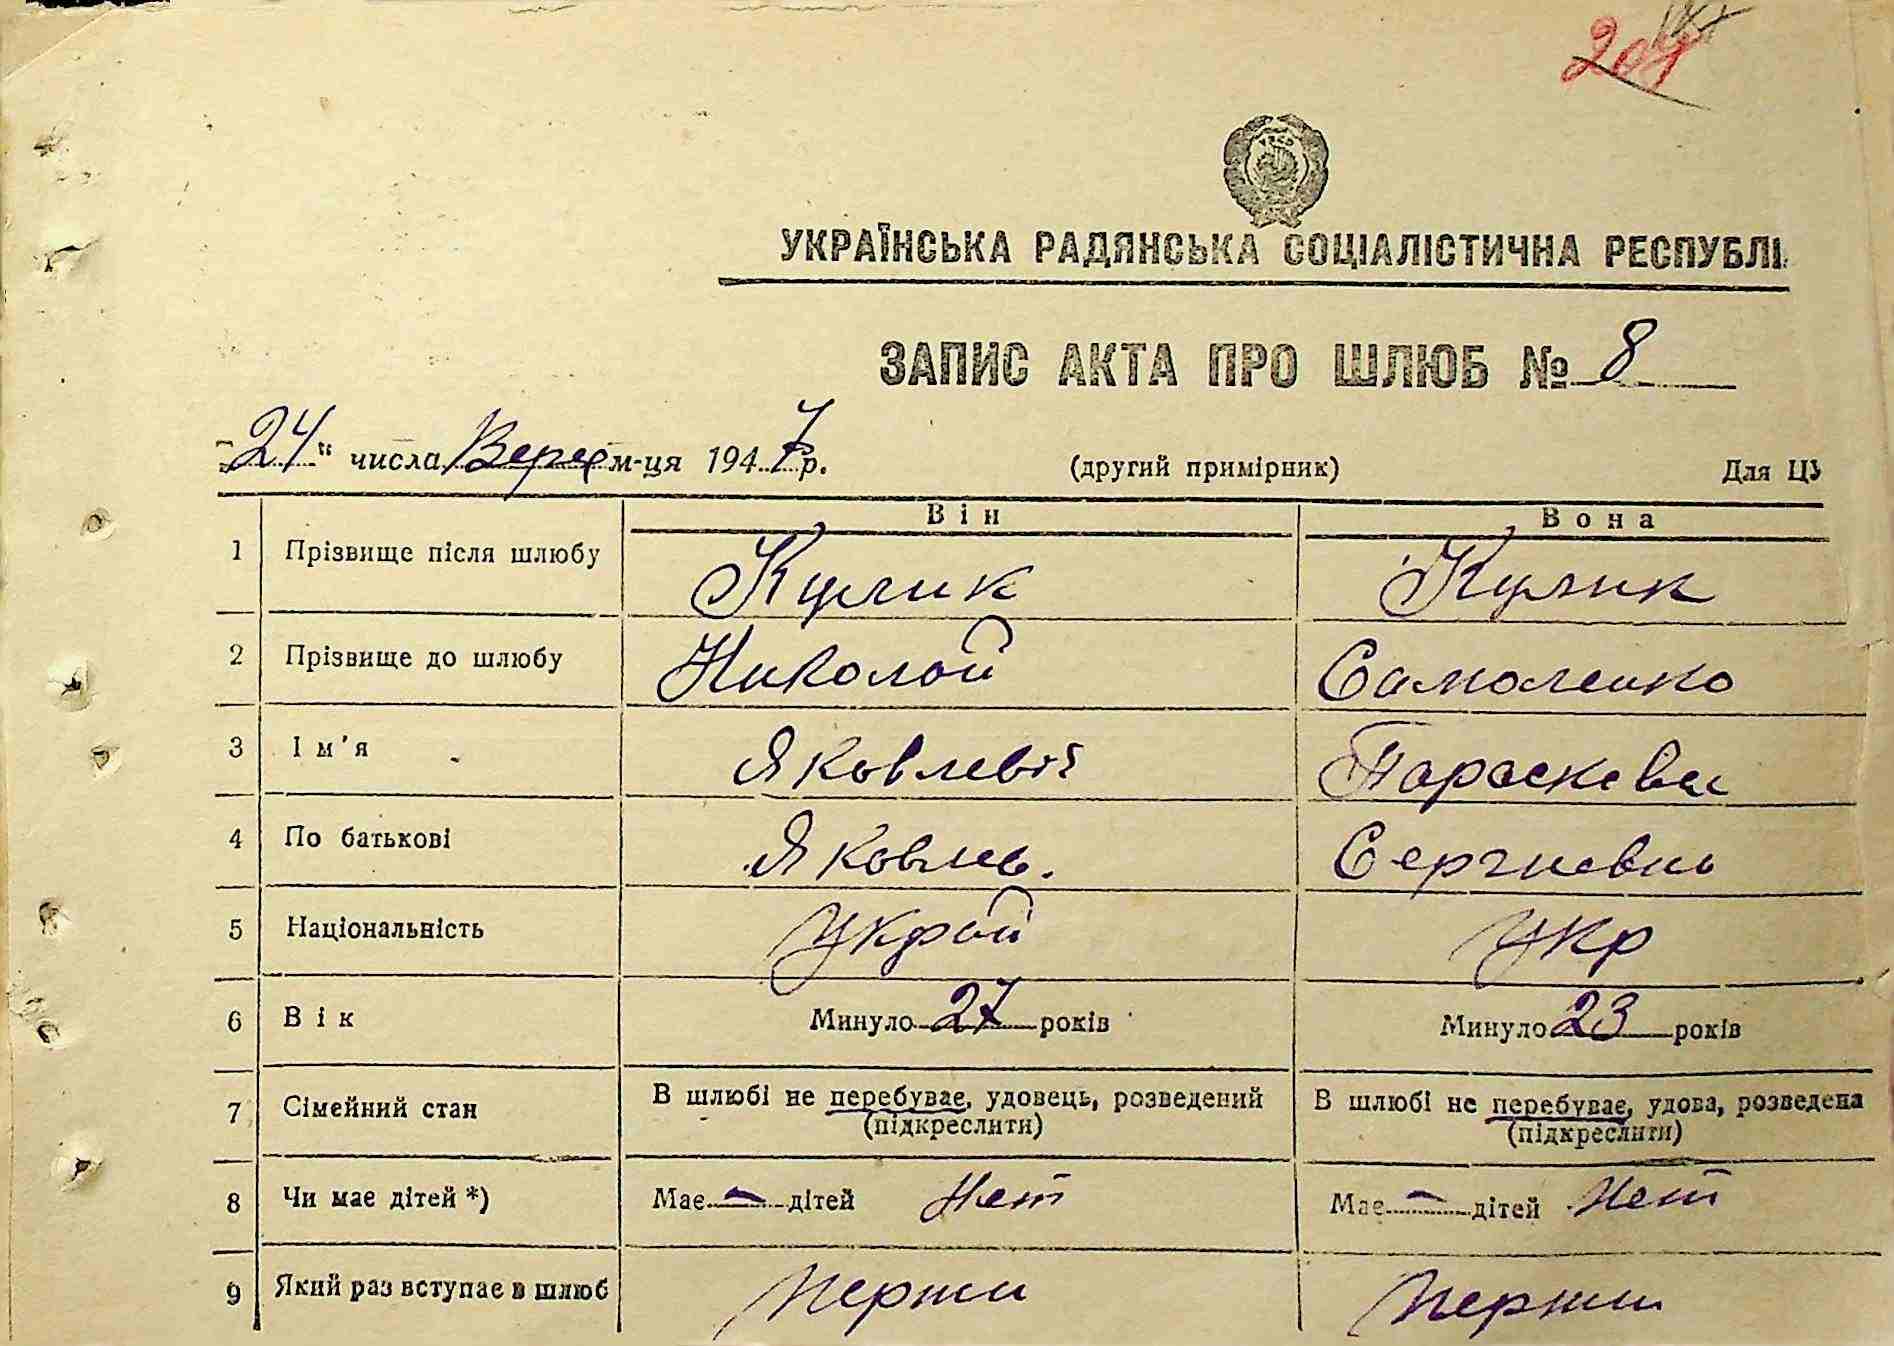 204
УКРАЇНСЬКА РАДЯНСЬКА СОЦІАЛІСТИЧНА РЕСПУБЛІ
ЗАПИС АКТА ПРО ШЛЮБ № 8
"24" числа Верес м-ця 1947 р. (другий примірник) Для ЦУ
Він Вона
1 Прізвище після шлюбу Кулик Кулик
2 Прізвище до шлюбу Николай Самоленко
3 Ім'я Яковлевіч Параскева
4 По батькові Яковлев. Сергиевна
5 Національність Украй Укр
6 Вік Минуло 27 років Минуло 23 років
7 Сімейний стан В шлюбі не перебуває, удовець, розведений В шлюбі не перебуває, удова, розведена
(підкреслити) (підкреслити)
8 Чи має дітей *) Має - дітей Нет Має - дітей Нет
9 Який раз вступає в шлюб Перши Перши